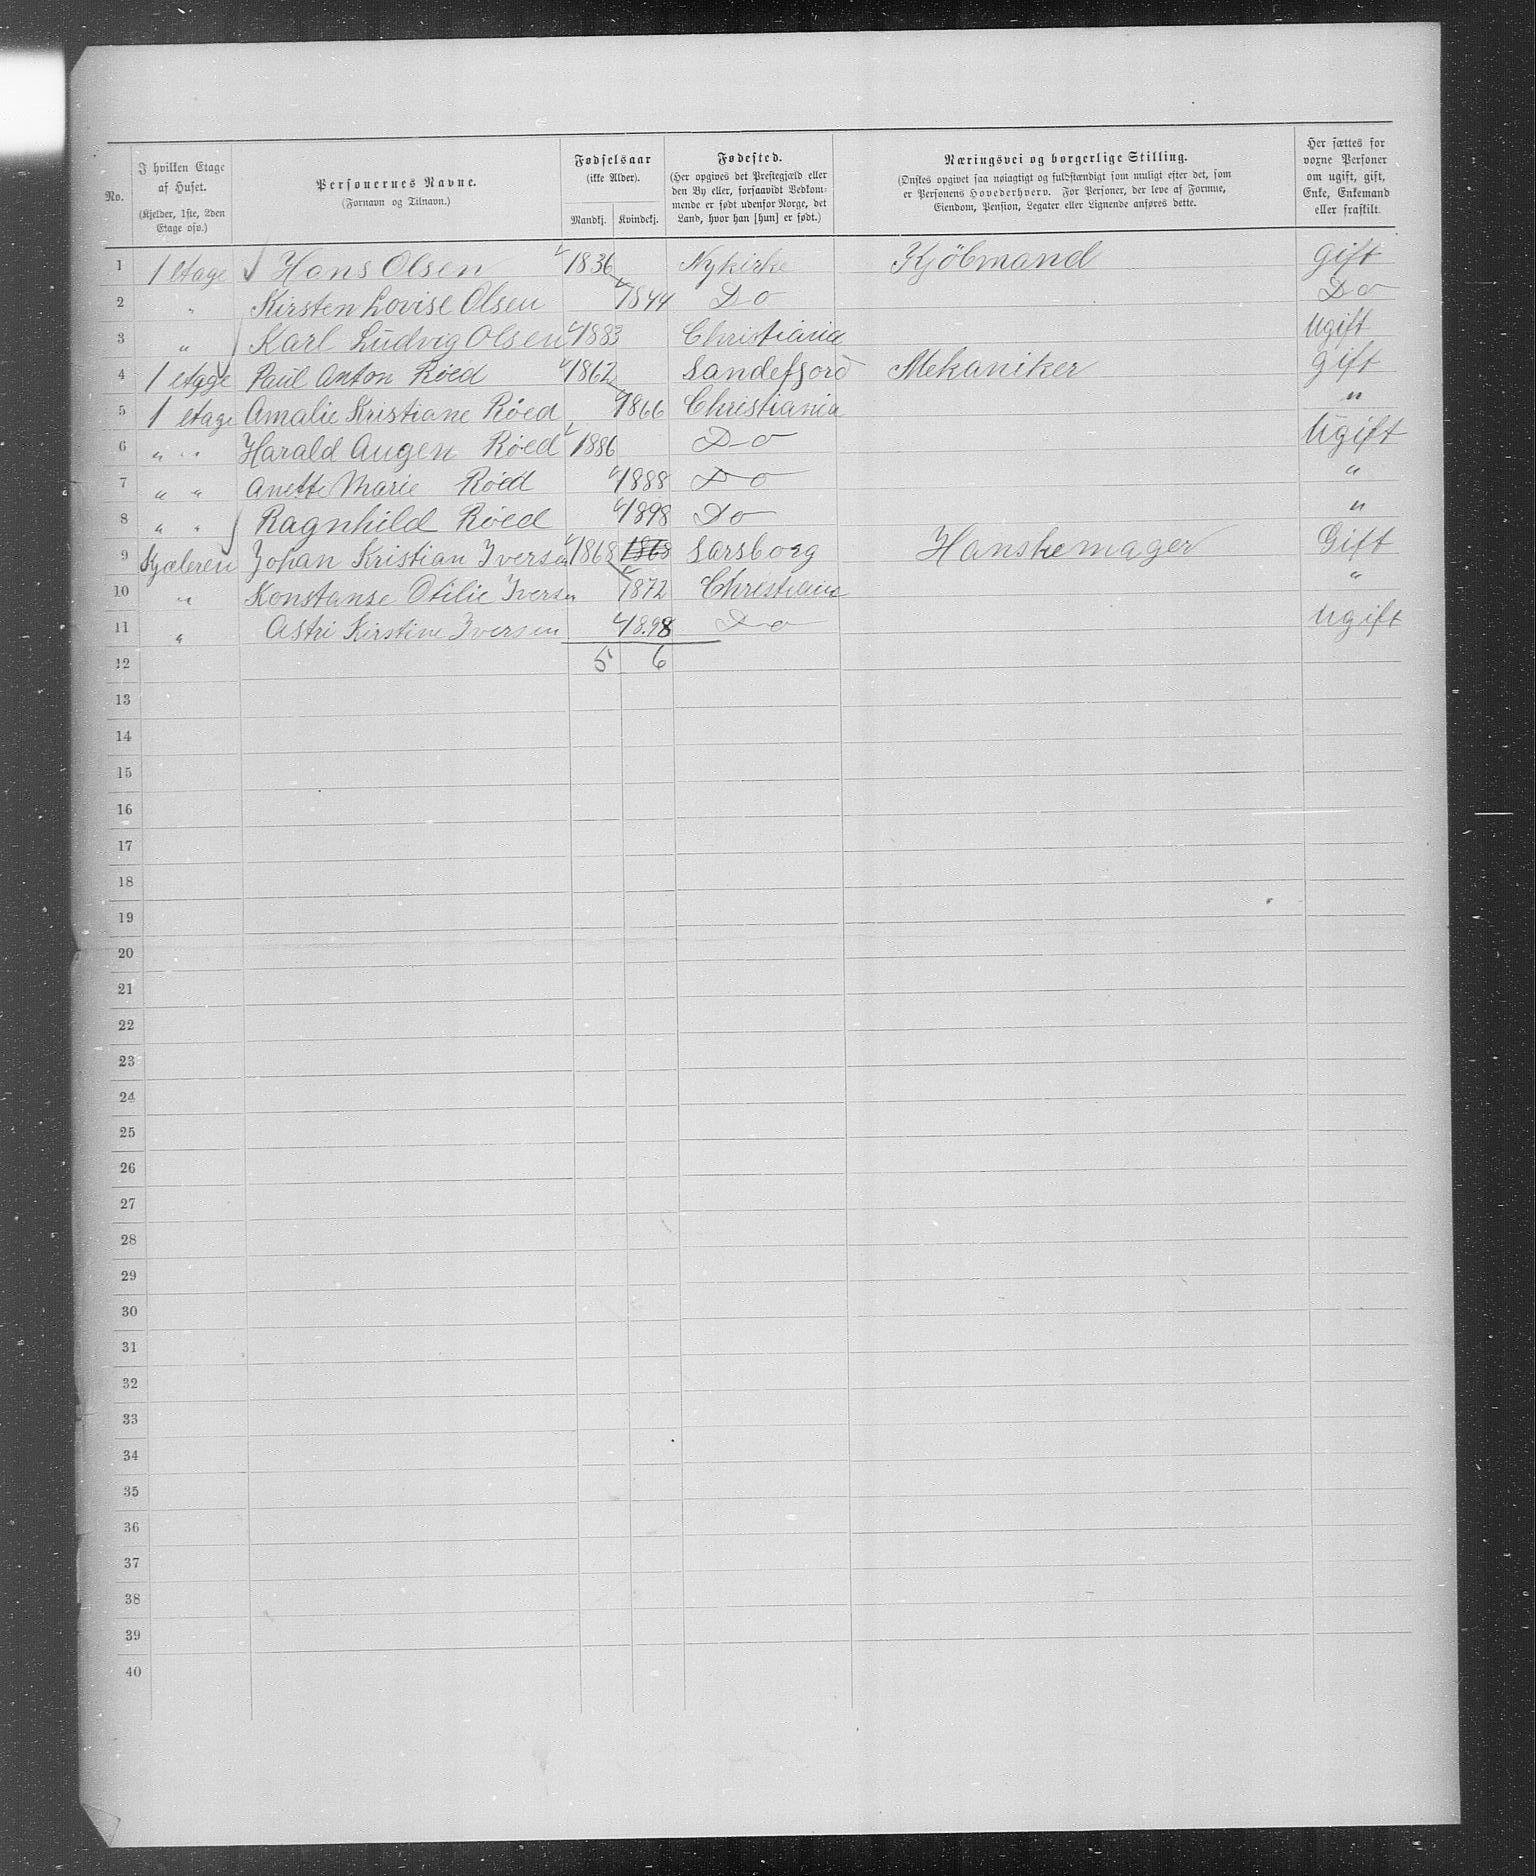 No. | I hvilken Etage af Huset. (Kjelder, 1ste, 2den Etage osv.) | Personernes Navne. (Fornavn og Tilnavn.) | Fødselsaar (ikke Alder). Mandkj. | Kvindekj. | Fødested. (Her opgives det Prestegjæld eller den By eller, forsaavidt Vedkommende er født udenfor Norge, det Land, hvor han [hun] er født.) | Næringsvei og borgerlige Stilling. (Ønskes opgivet saa nøiagtigt og fuldstændigt som muligt efter det, som er Personens Hovederhverv. For Personer, der leve af Formue, Eiendom, Pension, Legater eller Lignende anføres dette. | Her sættes for voxne Personer om ugift, gift, Enke, Enkemand eller fraskilt.
1 | 1 etage | Hans Olsen | 1836 | | Nykirke | Kjöbmand | gift
2 | " | Kirsten Lovise Olsen | | 1844 | Do | | Do
3 | " | Karl Ludvig Olsen | 1883 | | Christiania | | Ugift
4 | 1 etage | Paul Anton Röed | 1862 | | Sandefjord | Mekaniker | gift
5 | 1 etage | Amalie Kristiane Röed | | 1866 | Christiania | | "
6 | " " | Harald Augen Röed | 1886 | | Do | | Ugift
7 | " " | Anette Marie Röed | | 1888 | Do | | "
8 | " " | Ragnhild Röed | | 1898 | Do | | "
9 | Kjæleren | Johan Kristian Iversen | 1868 | 1868 | Sarsborg | Hanskemager | Gift
10 | " | Konstanse Otilie Iversen | | 1872 | Christiania | | "
11 | " | Astri Kirstine Iversen | | 1898 | Do | | Ugift
12 | | | 5 | 6
13
14
15
16
17
18
19
20
21
22
23
24
25
26
27
28
29
30
31
32
33
34
35
36
37
38
39
40